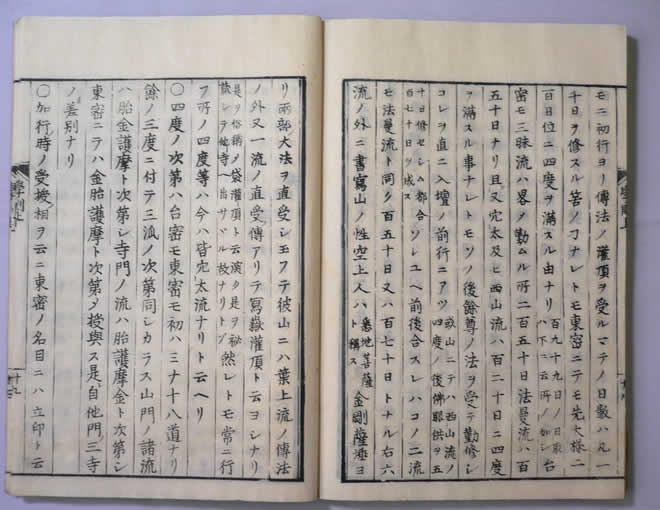 モニ初行ヨリ傳法ノ灌頂ヲ受ルマテノ日數ハ凡一
千日ヲ修スル筈ノヿナレトモ東密ニテモ先大様二
百日位ニ四度ヲ滿スル由ナリ百九十九日ノ日取ハ下ニ云所ノ如シ台
密モ三昧流ハ畧ヲ勤ムル所二百五十日法曼流ハ百
五十日ナリ且又穴太及ヒ西山流ハ百二十日ニ四度
ヲ滿スル事ナレトモソノ後餘尊ノ法ヲ受テ勤修シ
コレヲ直ニ入壇ノ前行ニアツ叡山ニテハ西山流ノ四度ノ後佛眼供ヲ五
十日修セシム都合百七十日ヲ成スソレユヘ前後合スレハコノ二流
モ法曼流ト同ク百五十日又ハ百七十日トナル右六
流ノ外ニ書寫山ノ性空上人ハ悉地菩薩ト稱ス金剛薩埵ヨ
リ兩部大法ヲ直受シ玉フテ彼山ニハ葉上流ノ傳法
ノ外又一流ノ直受傳アリテ冩嶽灌頂ト云ヨシナリ
是ヲ俗稱メ袋灌頂ト云演ク是ヲ秘シテ他寺ヘ出サヾル故ナリトゾ然レトモ常ニ行
フ所ノ四度等ハ今ハ皆穴太流ナリト云ヘリ
〇四度ノ次第ハ台密モ東密モ初ハミナ十八道ナリ
餘ノ三度ニ付テ三流ノ次第同シカラス山門ノ諸流
ハ胎金護摩ト次第シ寺門ノ流ハ胎護摩金ト次第シ
東密ニテハ金胎護摩ト次第メ授與ス是自他門三寺
ノ差別ナリ
〇加行時ノ受授相ヲ云ニ東密ノ名目ニハ立印ト云